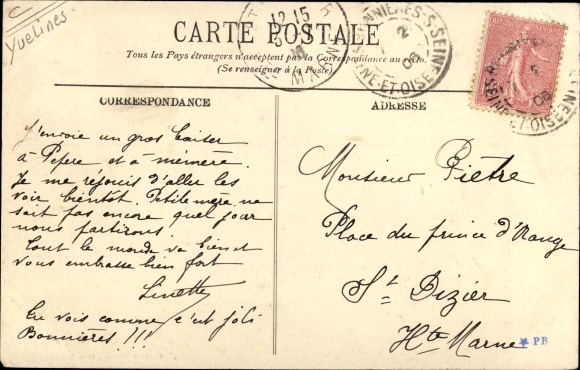 Yvelines
CARTE POSTALE
Tous les Pays étrangers n'acceptent pas la Correspondance au recto.
(Se renseigner à la Poste)
12 15
BONNIÈRES-S-SEINE
SEINE-ET-OISE
CORRESPONDANCE
J'envoie un gros baiser
à Pépère et à mémère.
Je me réjouis d'aller les
voir bientôt. Petite mère ne
sait pas encore quel jour
nous partirons.
Tout le monde va bien et
vous embrasse bien fort
Linette
Tu vois comme c'est joli
Bonnières !!!
ADRESSE
Monsieur Piètre
Place du prince d'Orange
St Dizier
Hte Marne
PB